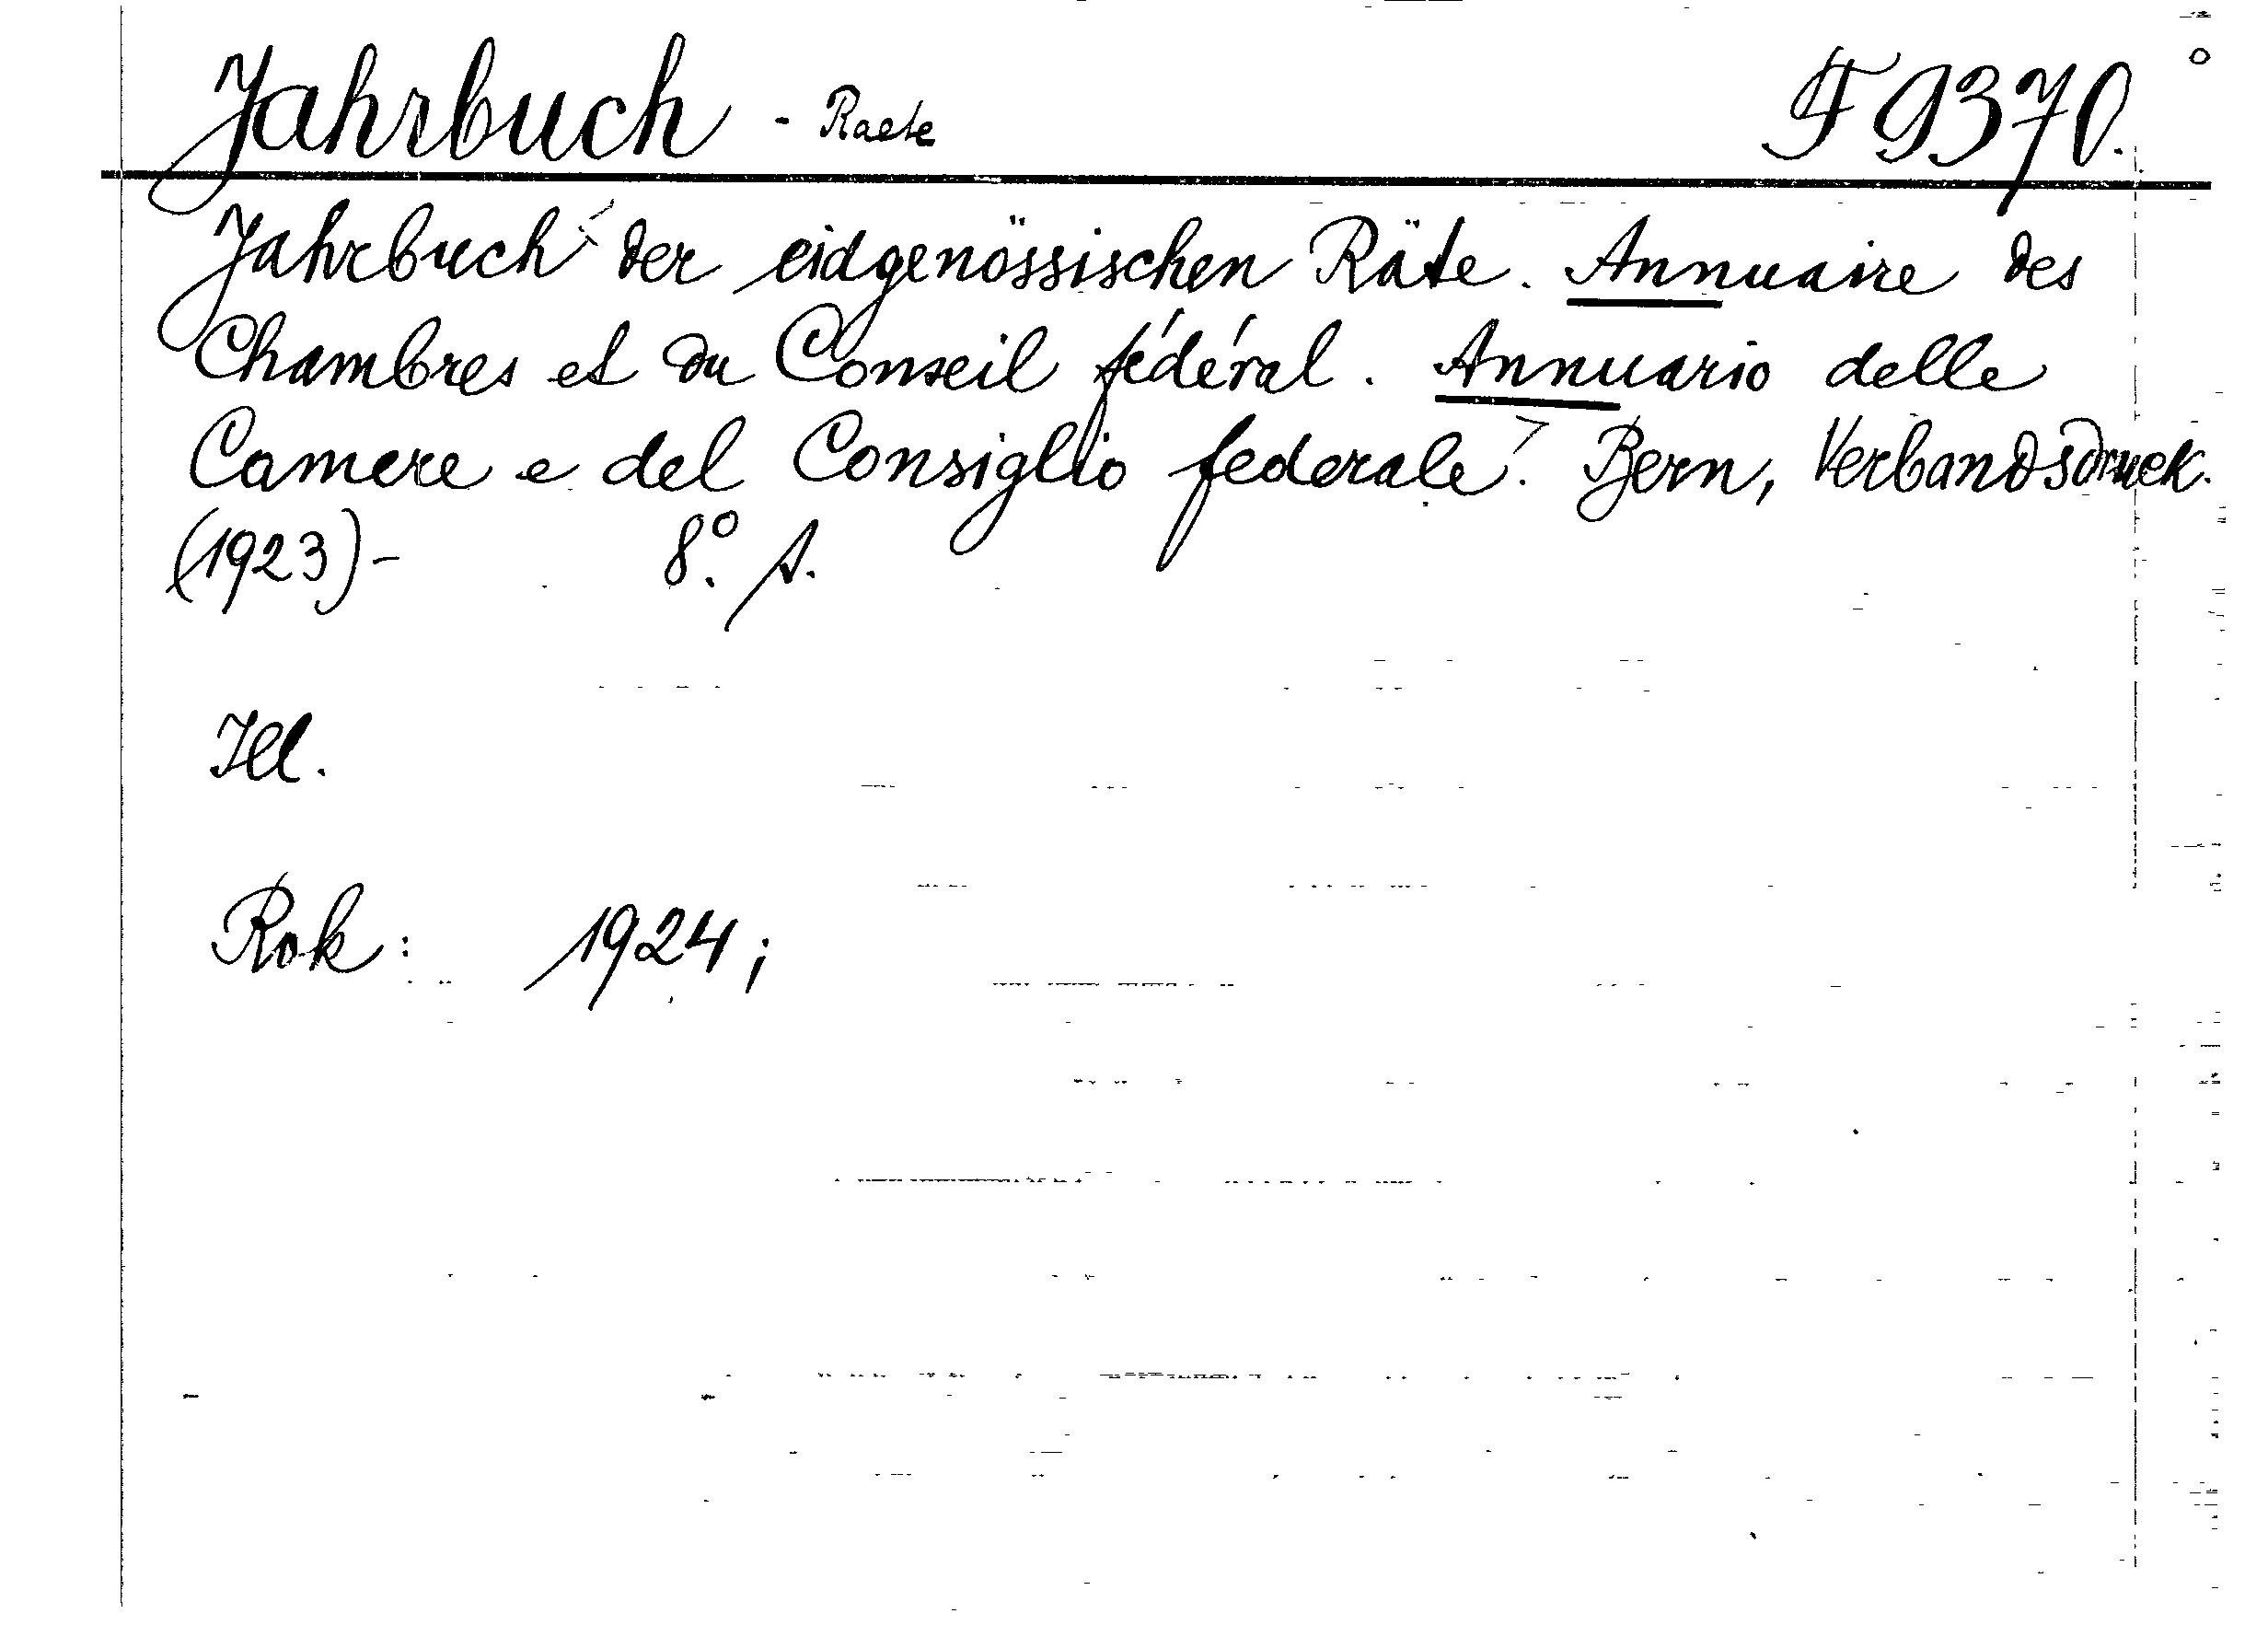 Jahrbuch - Raete F 9370.
Jahrbuch der eidgenössischen Räte. Annuaire des
Chambres et du Conseil fédéral. Annuario delle
Camere e del Consiglio federale. Bern, Verbandsdruck.
(1923)- 8°. A.
Ill.
Rok: 1924;